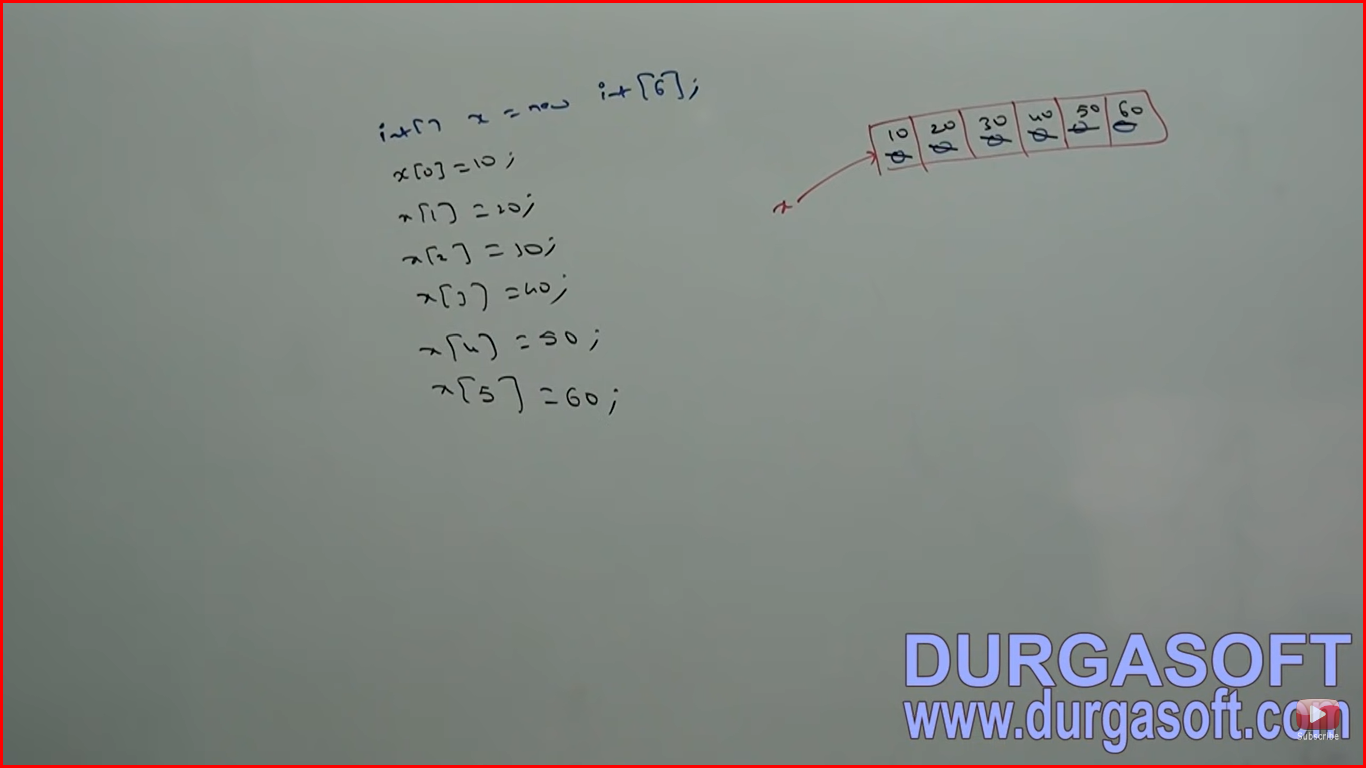 int[] x = new int[6];
x[0]=10;
x[1]=20;
x[2]=30;
x[3]=40;
x[4]=50;
x[5]=60;
10 20 30 40 50 60
0 0 0 0 0 0
x
DURGASOFT
www.durgasoft.com
Subscribe